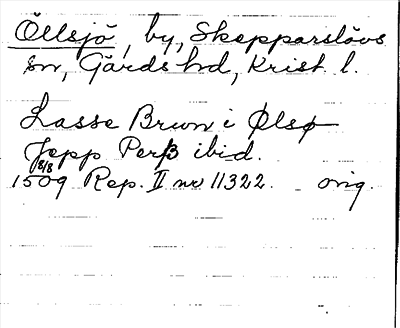 Öllsjö, by, Skepparslövs
sn, Gärds hd, Krist. l.
Lasse Brwn i Ølsø
Jepp Perß ibid.
8/8
1509 Rep. II nr 11322. orig.